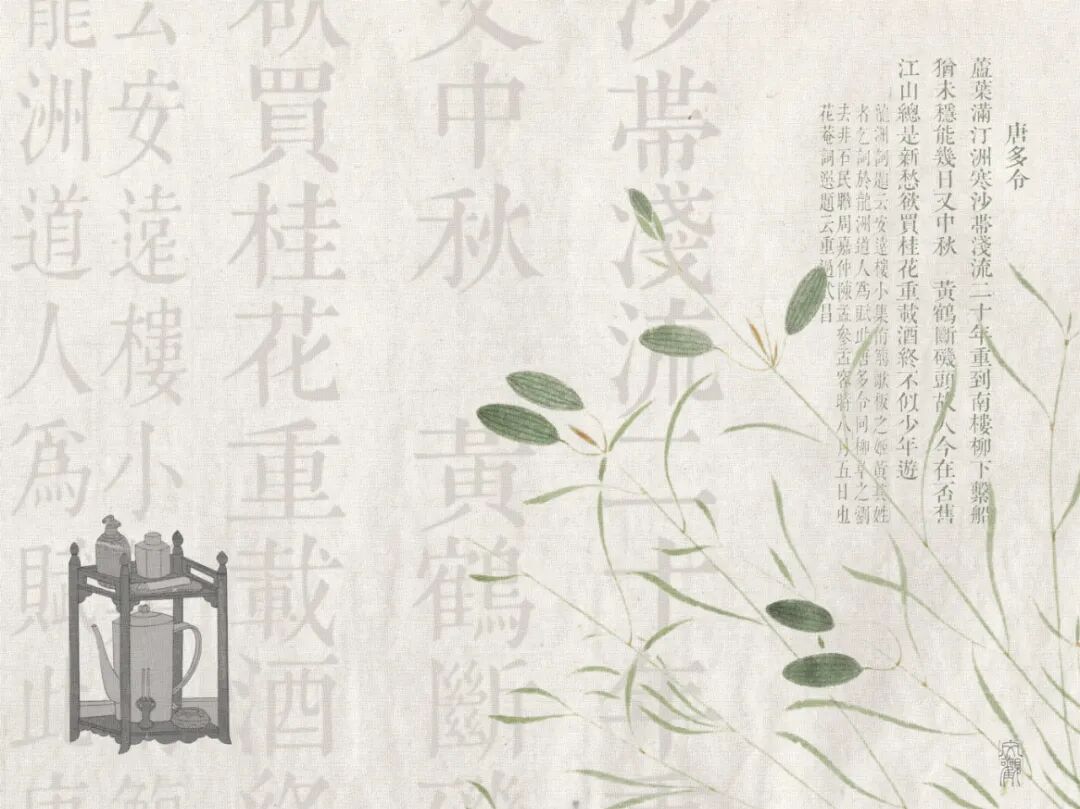 唐多令
蘆葉滿汀洲寒沙帶淺流二十年重到南樓柳下繫船
猶未穩能幾日又中秋　黃鶴斷磯頭故人今在否舊
江山總是新愁欲買桂花重載酒終不似少年遊
龍洲詞題云安遠樓小集侑觴歌板之姬黃其姓
者乞詞於龍洲道人爲賦此唐多令同柳阜之劉
去非石民瞻周嘉仲陳孟參孟容時八月五日也
花菴詞選題云重過武昌
沙帶淺流二十年重
又中秋　黃鶴斷磯
欲買桂花重載酒終
云安遠樓小
龍洲道人爲賦此唐